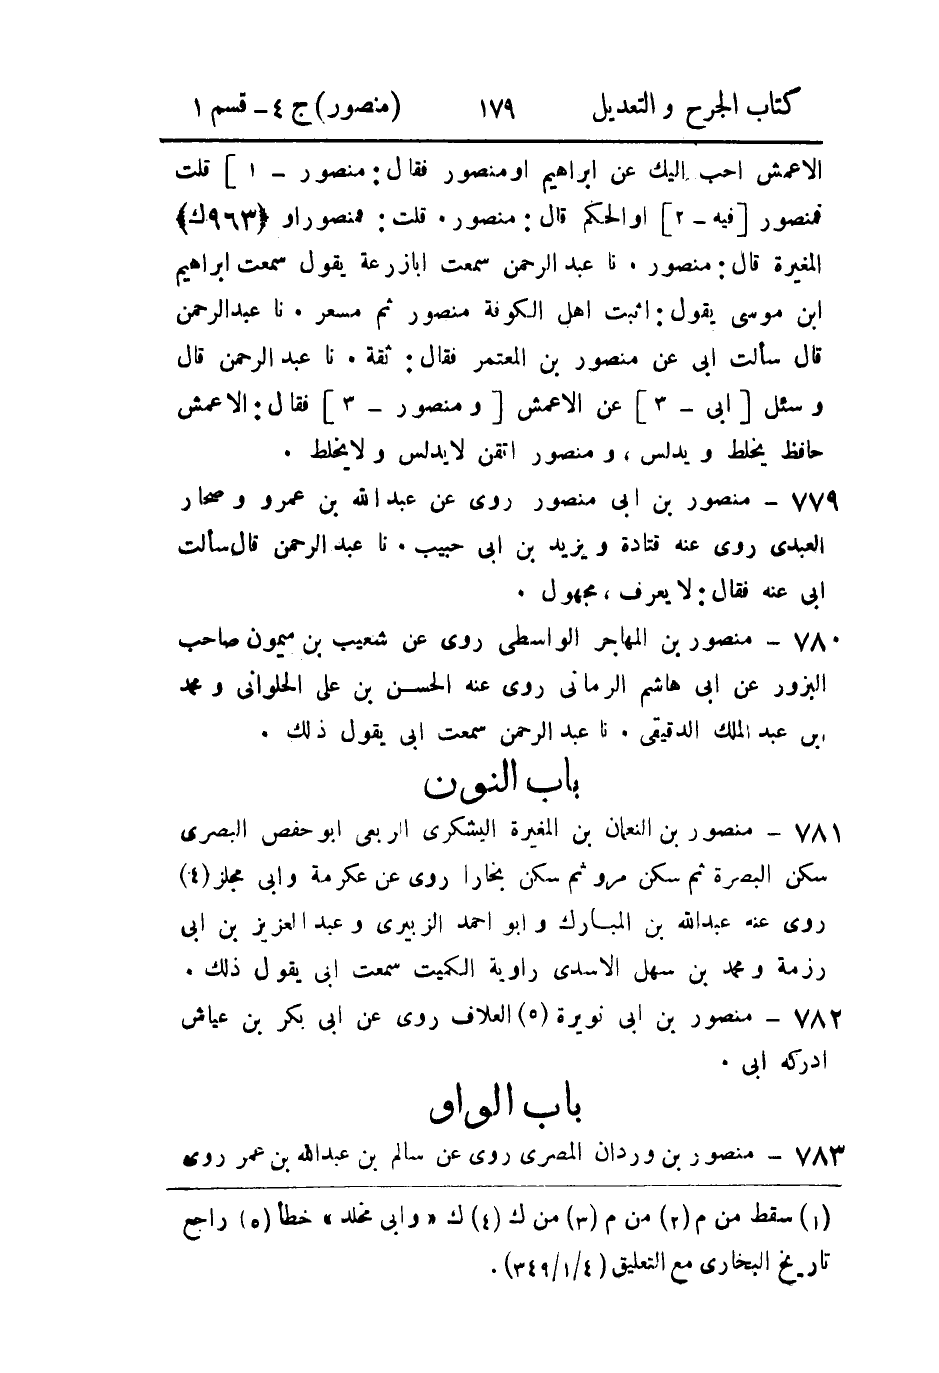 كتاب الجرح و التعديل ١٧٩ (منصور) ج ٤ - قسم ١
الاعمش احب اليك عن ابراهيم او منصور فقال: منصور - ١ ] قلت
فمنصور [ فيه - ٢ ] او الحكم قال: منصور. قلت: فمنصور او ﴿٩٦٣ك﴾
المغيرة قال: منصور. نا عبد الرحمن سمعت ابا زرعة يقول سمعت ابراهيم
ابن موسى يقول: اثبت اهل الكوفة منصور ثم مسعر. نا عبد الرحمن
قال سألت ابى عن منصور بن المعتمر فقال: ثقة. نا عبد الرحمن قال
و سئل [ ابى - ٣ ] عن الاعمش [ و منصور - ٣ ] فقال: الاعمش
حافظ يخلط و يدلس، و منصور اتقن لا يدلس و لا يخلط.
٧٧٩ - منصور بن ابى منصور روى عن عبد الله بن عمرو و صحار
العبدى روى عنه قتادة و يزيد بن ابى حبيب. نا عبد الرحمن قال سألت
ابى عنه فقال: لا يعرف، مجهول.
٧٨٠ - منصور بن المهاجر الواسطى روى عن شعيب بن ميمون صاحب
البزور عن ابى هاشم الرمانى روى عنه الحسن بن على الحلوانى و محمد
ابن عبد الملك الدقيقى. نا عبد الرحمن سمعت ابى يقول ذلك.
باب النون
٧٨١ - منصور بن النعمان بن المغيرة اليشكرى الربعى ابو حفص البصرى
سكن البصرة ثم سكن مرو ثم سكن بخارا روى عن عكرمة و ابى مجلز (٤)
روى عنه عبد الله بن المبارك و ابو احمد الزبيرى و عبد العزيز بن ابى
رزمة و محمد بن سهل الاسدى راوية الكميت سمعت ابى يقول ذلك.
٧٨٢ - منصور بن ابى نويرة (٥) العلاف روى عن ابى بكر بن عياش
ادركه ابى.
باب الواو
٧٨٣ - منصور بن وردان المصرى روى عن سالم بن عبد الله بن عمر روى
(١) سقط من م (٢) من م (٣) من ك (٤) ك « و ابى مخلد » خطأ (٥) راجع
تاريخ البخارى مع التعليق (٣٤٩/١/٤).